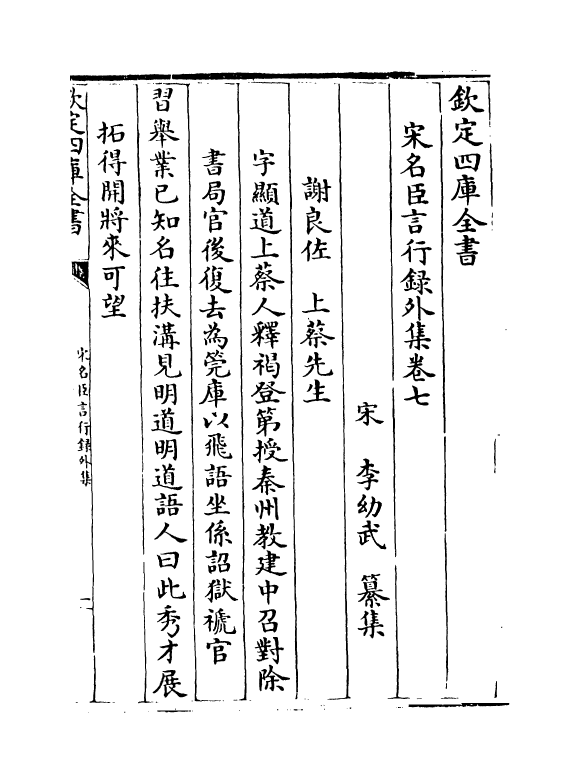 欽定四庫全書
宋名臣言行録外集卷七
宋 李幼武 纂集
謝良佐 上蔡先生
字顯道上蔡人釋褐登第授秦州教建中召對除
書局官後復去為筦庫以飛語坐係詔獄褫官
習舉業已知名往扶溝見明道明道語人曰此秀才展
拓得開將來可望
欽定四庫全書
宋名臣言行録外集
一